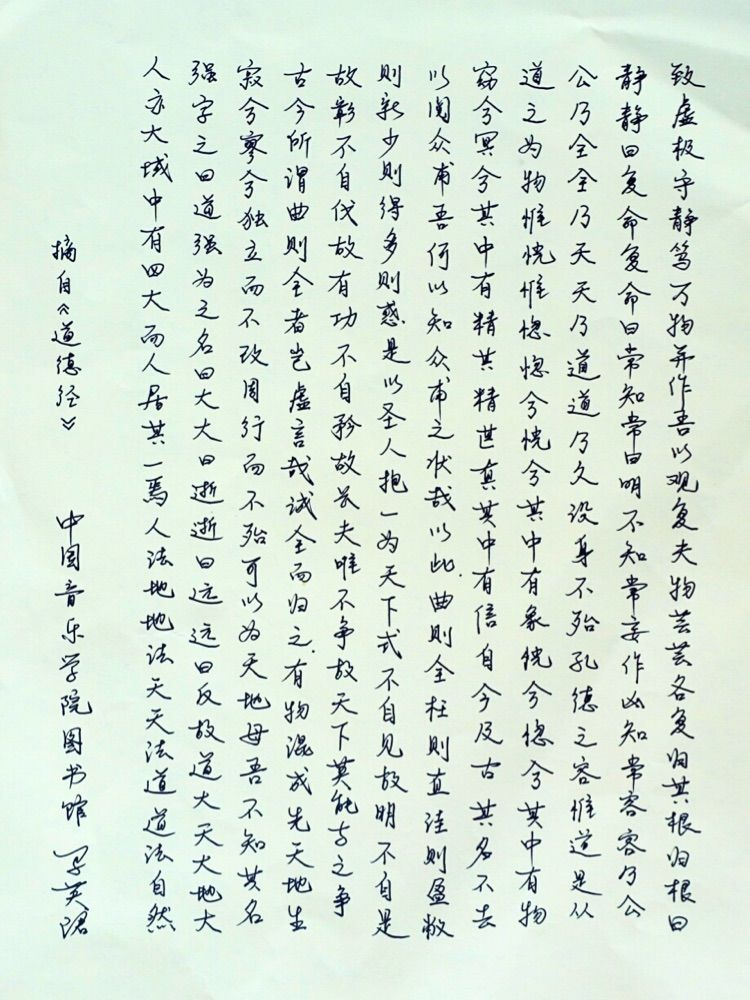 致虚极守静笃万物并作吾以观复夫物芸芸各复归其根归根曰
静静曰复命复命曰常知常曰明不知常妄作凶知常容容乃公
公乃全全乃天天乃道道乃久没身不殆孔德之容惟道是从
道之为物惟恍惟惚惚兮恍兮其中有象恍兮惚兮其中有物
窈兮冥兮其中有精其精甚真其中有信自今及古其名不去
以阅众甫吾何以知众甫之状哉以此.曲则全枉则直洼则盈敝
则新少则得多则惑是以圣人抱一为天下式不自见故明不自是
故彰不自伐故有功不自矜故长夫唯不争故天下莫能与之争
古今所谓曲则全者岂虚言哉诚全而归之.有物混成先天地生
寂兮寥兮独立而不改周行而不殆可以为天地母吾不知其名
强字之曰道强为之名曰大大曰逝逝曰远远曰反故道大天大地大
人亦大域中有四大而人居其一焉人法地地法天天法道道法自然
摘自《道德经》 中国音乐学院图书馆 英珺